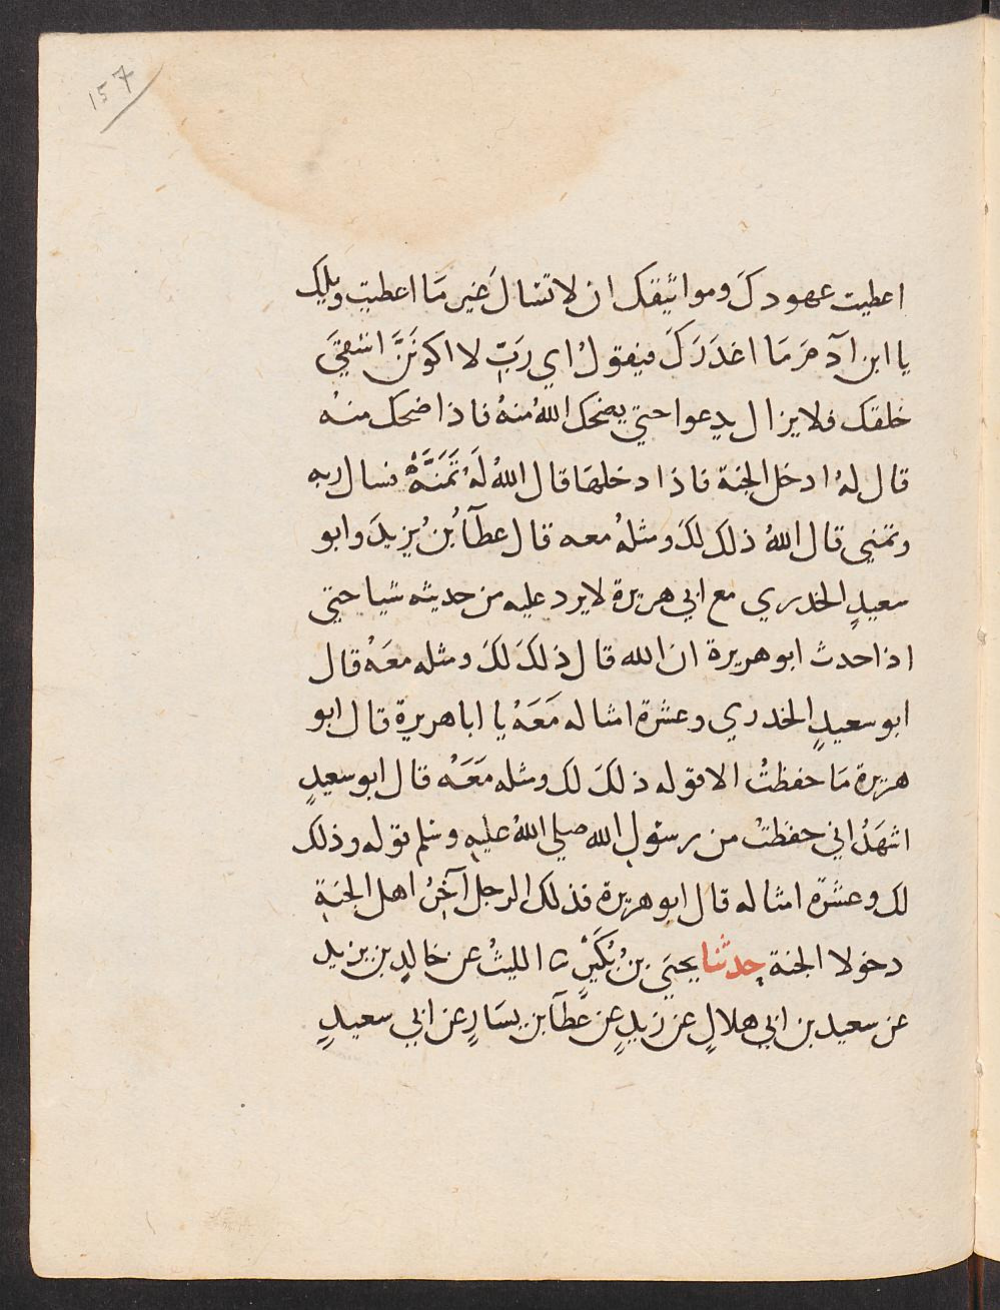 157
اعطيت عهودكَ ومواثيقك ان لا تسال غير مَا اعطيت ويلك
يا ابن آدمَ مَا اغدَرَكَ فيقولُ اي رَبِّ لا اكونَنَّ اشقيَ
خلقك فلا يزال يدعوا حتي يضحك اللهُ منهُ فاذا ضحك منهُ
قال لهُ ادخل الجنة فاذا دخلهَا قال اللهُ لَهُ تَمَنَّهْ فسال ربه
وتمني قال اللهُ ذلك لكَ ومثلُه معه قال عطآ بُن يزيدَ وابو
سعيدٍ الخدري مع ابي هريرة لا يرد عليه من حديثه شيا حتي
اذا حدث ابو هريرة ان الله قال ذلكَ لكَ ومثله معَهُ قال
ابو سعيدٍ الخدري وعشرة امثاله مَعَهُ يا ابا هريرة قال ابو
هريرة مَا حفظتُ الا قوله ذلكَ لك ومثله مَعَهُ قال ابو سعيدٍ
اشهَدُ اني حفظتُ من رسولِ الله صلي اللهُ عليهِ وسلم قوله وذلك
لك وعشرة امثاله قال ابو هريرة فذلك الرجل آخِرُ اهل الجنةِ
دخولا الجنة حدثنا يحيَي بنُ بُكَيْرٍ ثنا الليثُ عن خالدٍ بن يزيد
عن سعيد بن ابي هلالٍ عن زيدٍ عن عطآ بن يسَارٍ عن ابي سعيدٍ